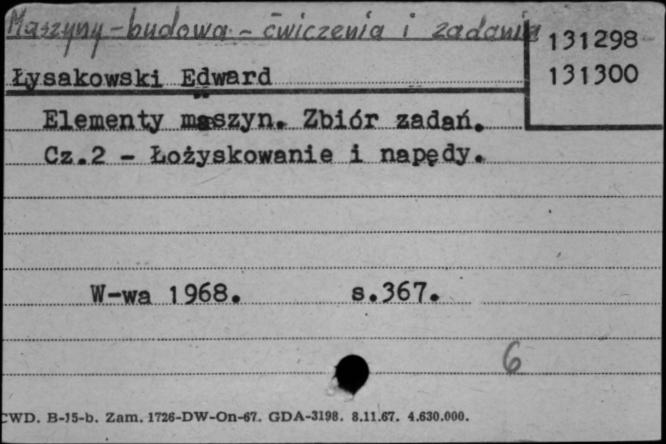 Maszyny - budowa - ćwiczenia i zadania
131298
131300
Łysakowski Edward
Elementy maszyn. Zbiór zadań.
Cz.2 - Łożyskowanie i napędy.
W-wa 1968. s.367.
6
CWD. B-15-b. Zam. 1726-DW-On-67. GDA-3198. 8.11.67. 4.630.000.